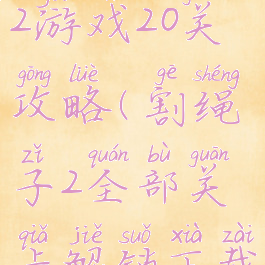 2游戏20关
gōng lüè gē shéng
攻略(割绳
zǐ quán bù guān
子2全部关
qiǎ jiě suǒ xià zài
卡解锁下载